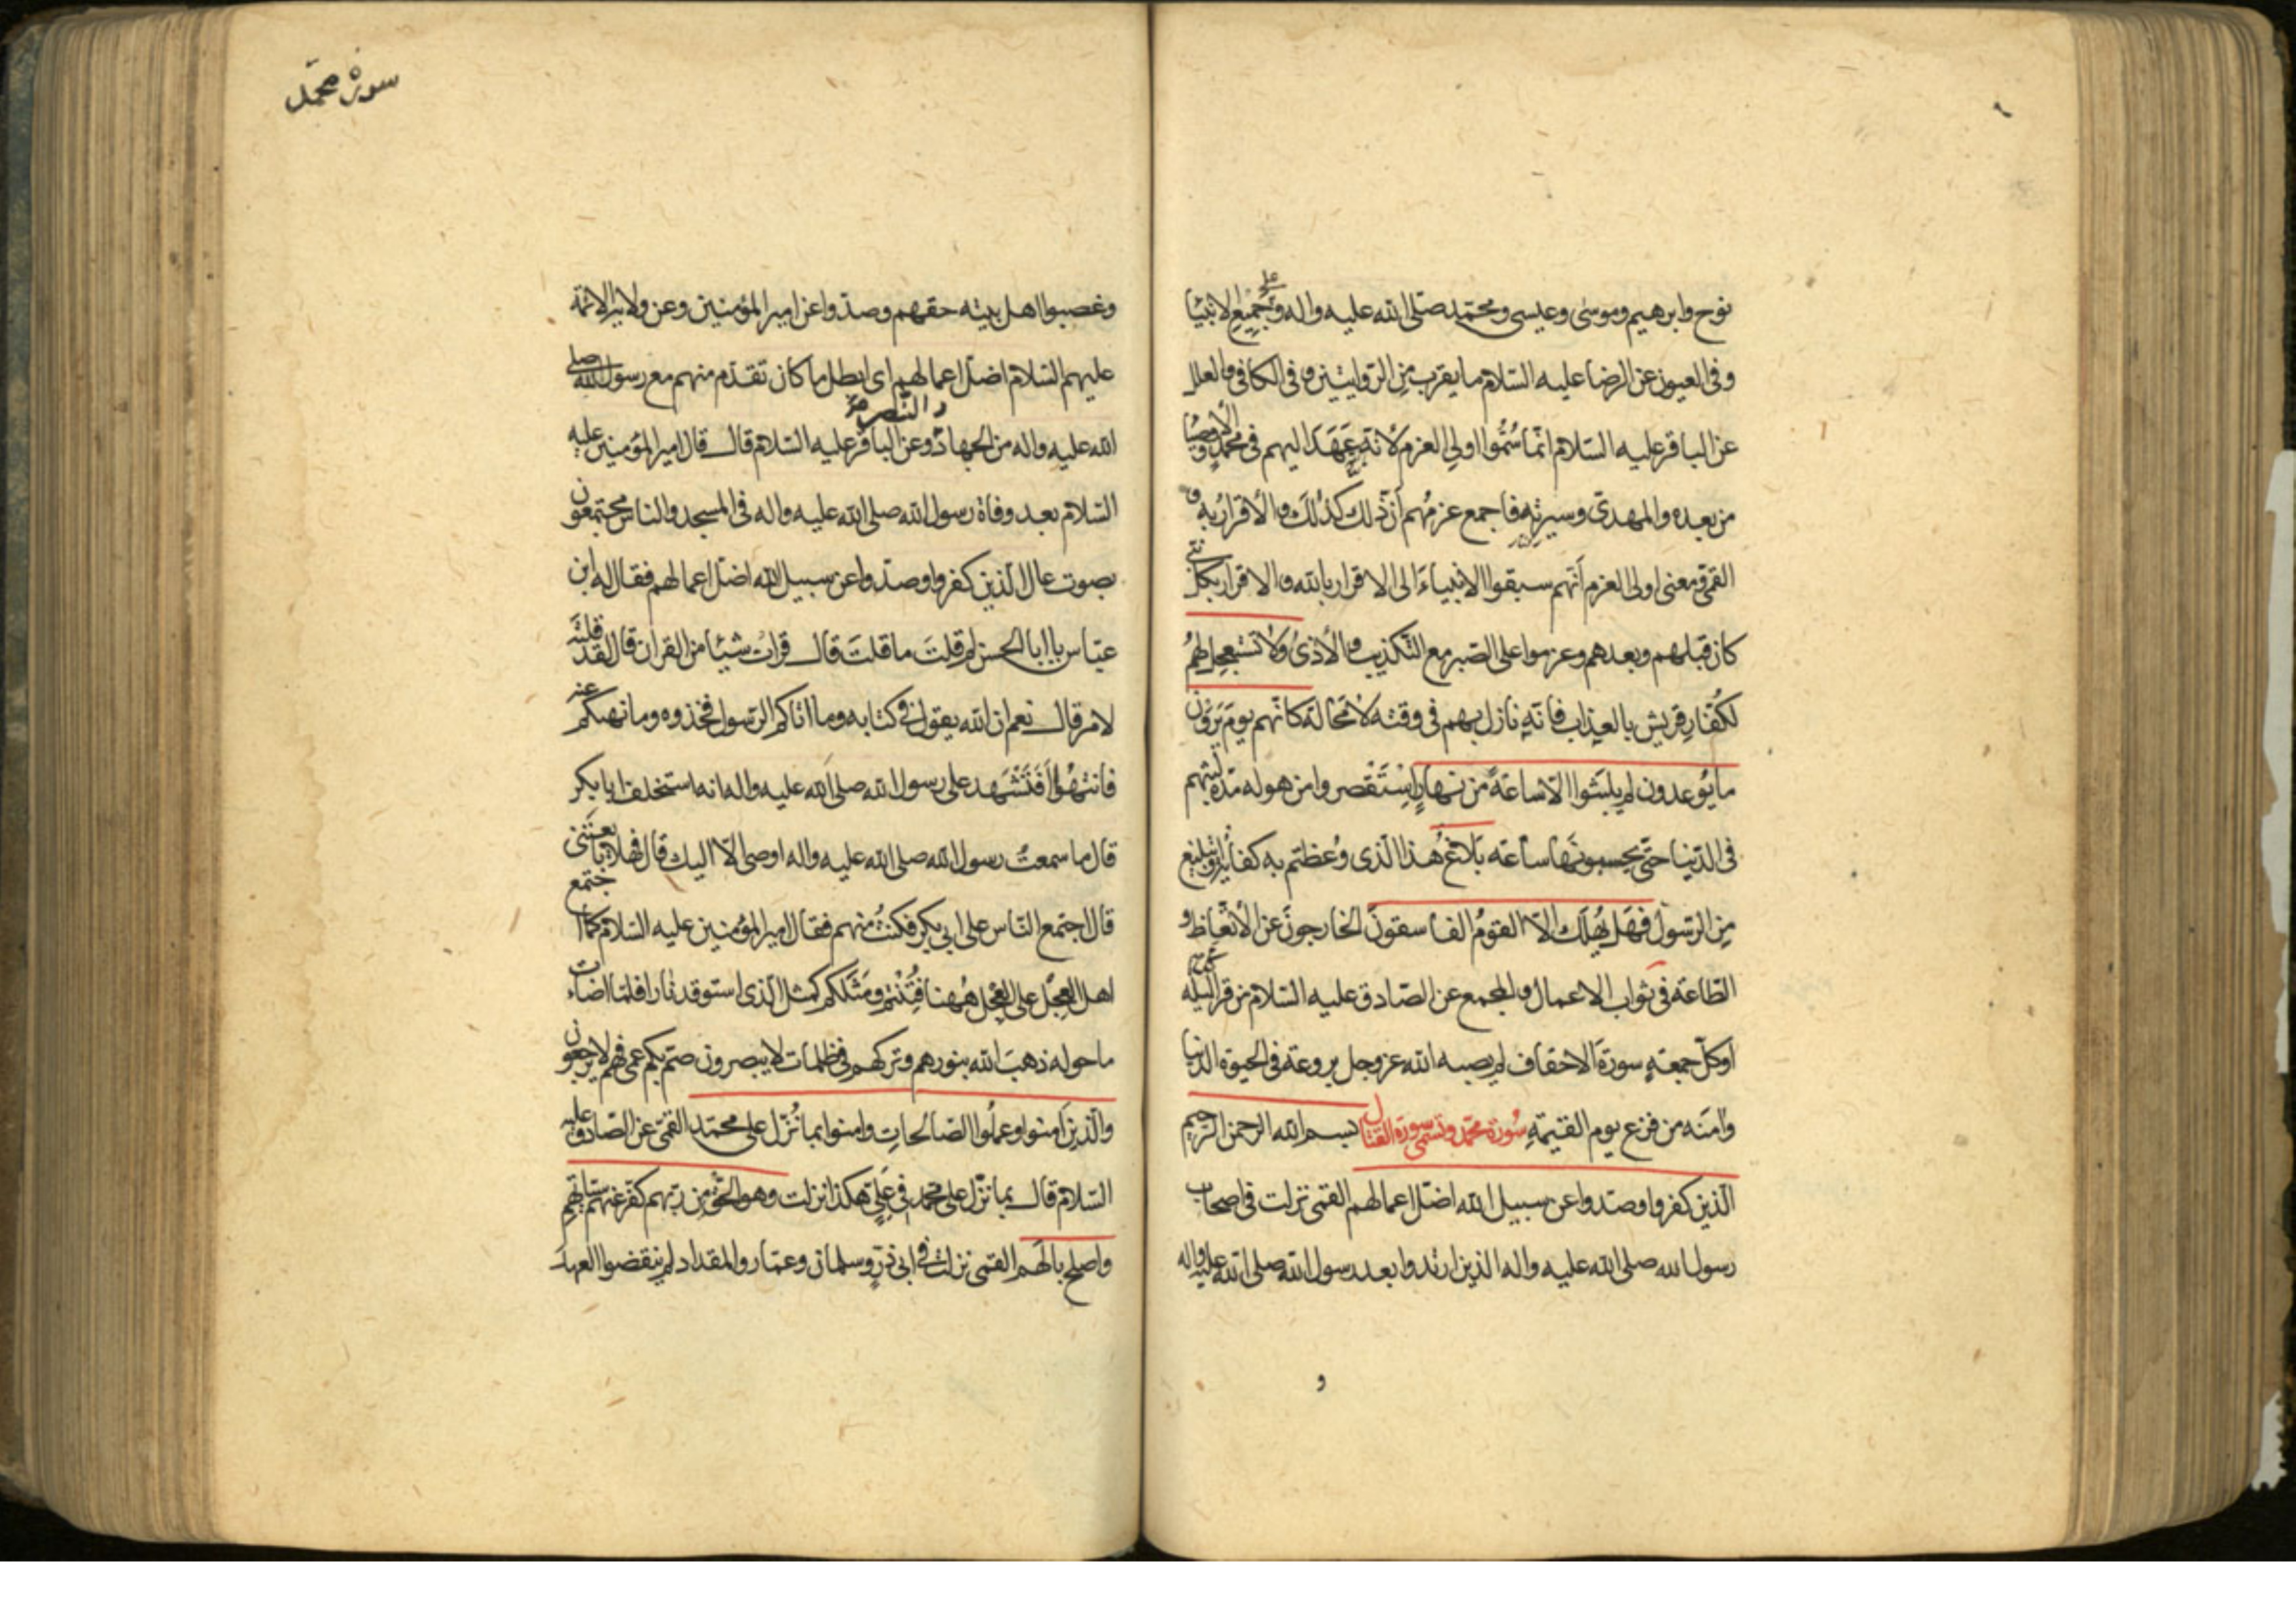 نوح وابرهيم وموسى وعيسى ومحمد صلى الله عليه واله وعلى جميع الانبيا
وفى العيون عن الرضا عليه السلام ما يقرب من الروايتين وفى الكافى والعلل
عن الباقر عليه السلام انما سُمّوا اولى العزم لانه عَهَدَ اليهم فى محمدٍ والأوصيا
من بعده والمهدى وسيرته فاجمع عزمُهم أنّ ذلك كذلك والأقرارُ به و
القمى ومعنى اولى العزم أنهم سبقوا الانبياءَ الى الاقرار بالله والاقرار بكل نبى
كان قبلهم وبعدهم وعزموا على الصبر مع التكذيب والأذىٰ ولا تستعجل لهُم
لكُفّارِ قريش بالعذاب فانه نازل بهم فى وقته لا مَحالة كانهم يومَ يَرَون
ما يُوعدون لم يلبَثوا الّا ساعةً من نهارٍ اِسْتَقْصروا من هوله مدة لبثهم
فى الدنيا حتّى يحسبونَها ساعته بَلاغٌ هذا الّذى وُعظتم به كفاية او تبليغ
مِن الرسول فهَل يُهلَك الّا القومُ الفاسقونَ الخارجونَ عن الأتّعاظ و
الطاعة فى ثواب الاعمال والمجمع عن الصادق عليه السلام من قرا كل ليلة
اوكلّ جمعةٍ سورةَ الاحقاف لم يصبه الله عزوجل بروعة فى الحيوة الدنيا
وامنَه من فزع يوم القيمةِ سُورة محمّد وتسمى سورة القتال بسم الله الرحمن الرحيم
الّذين كفروا وصدّوا عن سبيل الله اضلّ اعمالهم القمى نزلت فى اصحاب
رسول الله صلى الله عليه واله الذين ارتدوا بعد رسول الله صلى الله عليه واله
و
سورة محمّد
وغصبوا اهل بيته حقهم وصدّوا عن امير المؤمنين وعن ولاية الائمة
عليهم السّلام اضلّ اعمالهم اى ابطل ما كان تقدّم منهم مع رسول الله صلى
الله عليه واله من الجهاد والنّصرة وعن الباقر عليه السّلام قال قال امير المؤمنين عليه
السّلام بعد وفاة رسول الله صلى الله عليه واله فى المسجد والناس مجتمعون
بصوت عال الّذين كفروا وصدّوا عن سبيل الله اضلّ اعمالهم فقال له ابن
عبّاس يا ابا الحسن لم قلتَ ما قلتَ قال قرات شيئا من القران قال لقد قلتَه
لامر قال نعم ان الله يقول فى كتابه وما اتاكم الرّسول فخذوه وما نهيكم عنه
فانتهُوا أَفَتَشْهَد على رسول الله صلى الله عليه واله انه استخلف ابا بكر
قال ما سمعتُ رسول الله صلى الله عليه واله اوصى الّا اليك قال فهلّا بايعتَنى
قال اجتمع النّاس على ابى بكر فكنتُ منهم فقال امير المؤمنين عليه السّلام كما اجتمع
اهل العِجل على العِجل هٰهنا فُتِنْتم ومَثَلكم كمثل الّذى استوقد نارا فلمّا اضاءت
ما حوله ذهبَ الله بنورهم وتركهم فى ظلمات لا يبصرون صمّ بكم عمى فهم لا يرجعون
والّذينَ اَمنوا وعملُوا الصّالحاتِ وامنوا بما نُزّل على محمّدٍ القمى عن الصّادق عليه
السّلام قال بما نزّل على محمّد فى عَلىٍّ هكذا نزلت وهو الحَقّ مِن ربّهم كفّر عنهم سيّئاتهم
واصلح بالَهم القمى نزلت فى ابى ذرّ وسلمان وعمّار والمقداد لم ينقضوا العهدَ